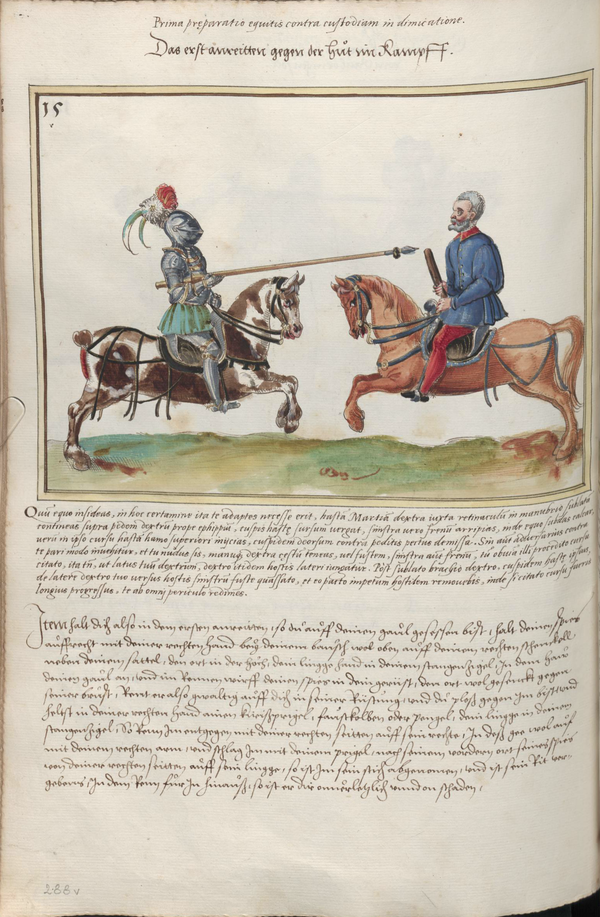 Prima preparatio equitis contra custodiam in dimicatione.
Das erst anreitten gegen der hůt im Kampff.
15
Quū equo insideas, in hoc certamine ita te adaptes necesse erit, hastā Martiā dextra iuxta retinaculū in manubrio sublatā
contineas supra pedem dextrū prope ephippiū, cuspis hastę sursum vergat, sinistra vero frenū arripias, inde equo subdas calcar,
verū in ipso cursu hastā hamo superiori inijcias, cuspidem deorsum contra peditis pectus demissa. Sin aūt adversarius contra
te pari modo invehitur, et tu nudus sis, manuq́ dextra cęstū teneas, vel fustem, sinistra aūt frenū, tu obvia illi procedito cursu
citato, ita tn̄, ut latus tuū dextrum, dextro itidem hostis lateri iungatur. Pōst sublato brachio dextro, cuspidem hastę ipsius,
de latere dextro tuo versus hostis sinistrū fuste quassato, et eo pacto impetum hostilem removebis, inde si citato cursu fueris
longius progressus, te ab omni periculo redimes.
Item halt dich also in dem ersten anreitten, so du auff deinem gaul gesessen bist, halt deinen spies
auffrecht mit deiner rechten hand beÿ deinem bausch wol oben auff deinem rechten schenckell
neben deinem sattel, den ort in der höch, dein lingge hand in deinem stangenzigel, In dem haw
deinen gaul an, und im Rennen wirff deinen spies in dein gerüst, den ort wol gesenckt gegen
seiner brust, Rent er also gwaltig auff dich in seiner Rüstung, und du ploß gegen Im bist, und
helst in deiner rechten hand ainen kirißprigel, faustkolben oder pengel, dein lingge in deinem
stangenzigel, So Renn Im entgegen mit deiner rechten seitten auff sein rechte, In deß gee wol auf
mit deinem rechten arm, und schlag Im mit deinem prigel nach seinem vordern ort seines spies
von deiner rechten seitten auff sein lingge, so ist Im sein stich abgenomen, und ist sein Rit ver-
gebens, In dem Renn für In hinauß, so ist er dir onverletzlich unnd on schaden,
288v